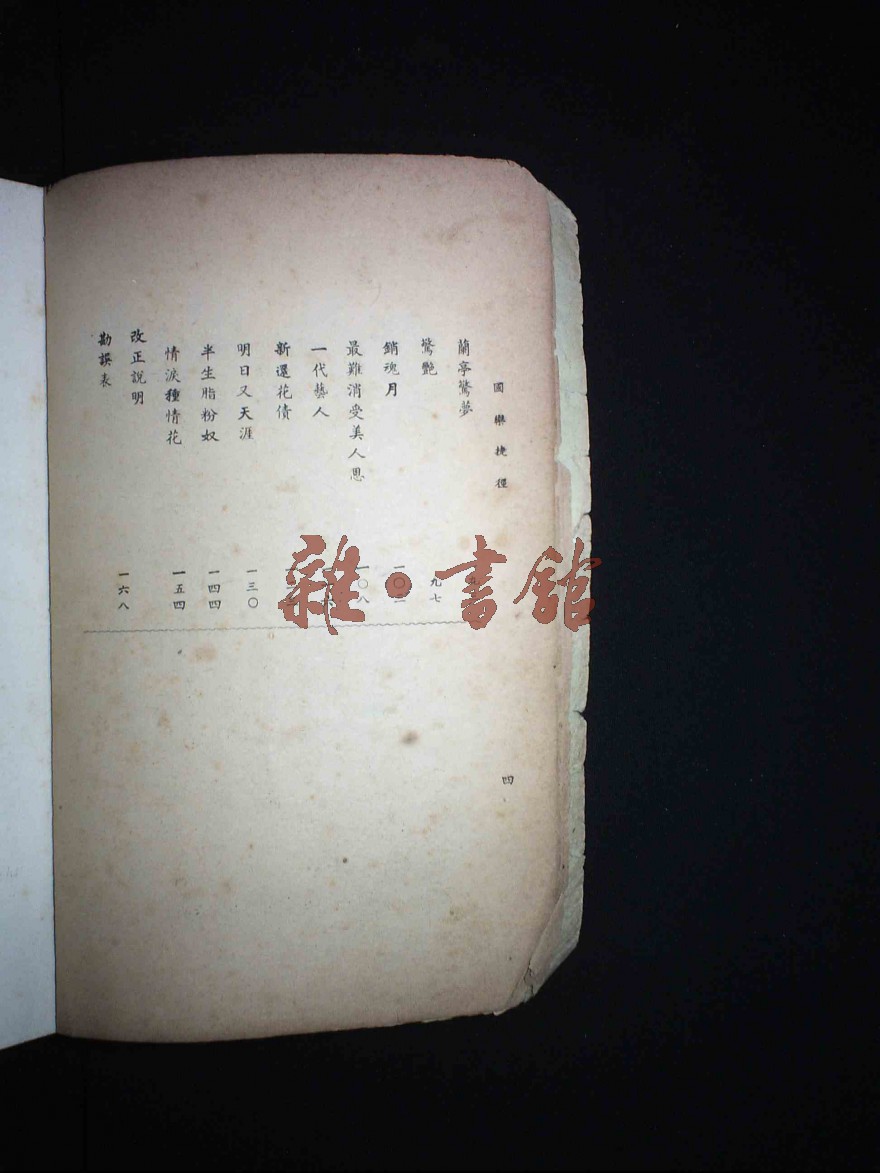 國樂捷徑
蘭亭驚夢
驚艷 九七
銷魂月
最難消受美人恩 一〇八
一代藝人
新還花債
明日又天涯 一三〇
半生脂粉奴 一四四
情淚種情花 一五四
改正說明 一六八
勘誤表
四
雜·書館